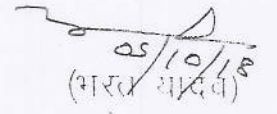 05/10/18
(भरत यादव)